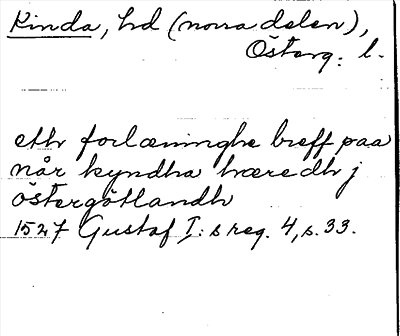 Kinda, hd (norra delen),
Österg. l.
ett forlæninghe breff paa
når kyndha hæredh j
östergötlandh
1527 Gustaf I:s reg. 4, s. 33.